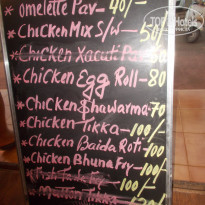 * omelette Pav - 40/-
* Chicken Mix S/W - 50
* Chicken Xacuti Pav 50
* Chicken Egg Roll - 80
* Chicken Shawarma - 70
* Chicken Tikka - 100/-
* Chicken Baida Roti - 100/-
* Chicken Bhuna Fry - 100/-
* Mutton Tikka 120/-